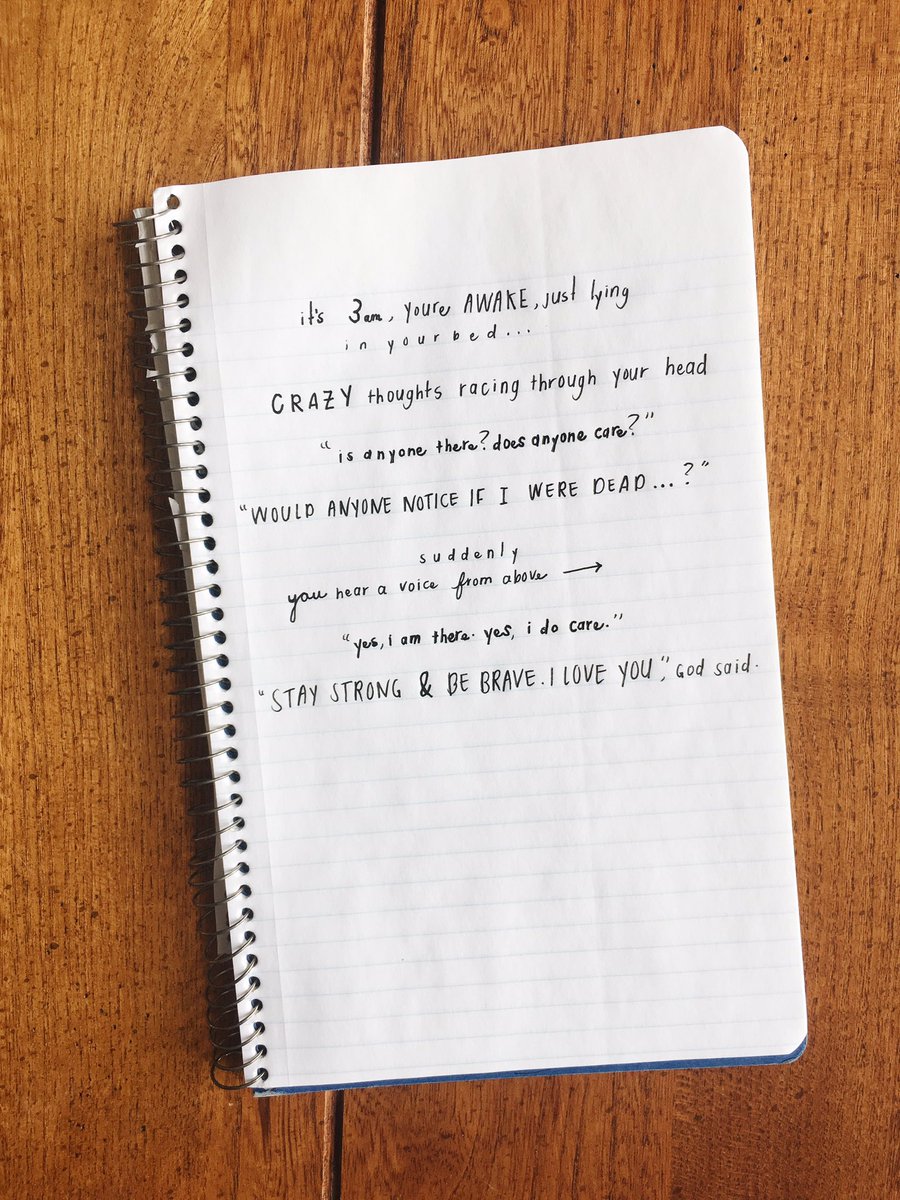 it's 3am, youre AWAKE, just lying
in your bed...
CRAZY thoughts racing through your head
"is anyone there? does anyone care?"
"WOULD ANYONE NOTICE IF I WERE DEAD...?"
suddenly
you hear a voice from above →
"yes, i am there. yes, i do care."
"STAY STRONG & BE BRAVE. I LOVE YOU", God said.